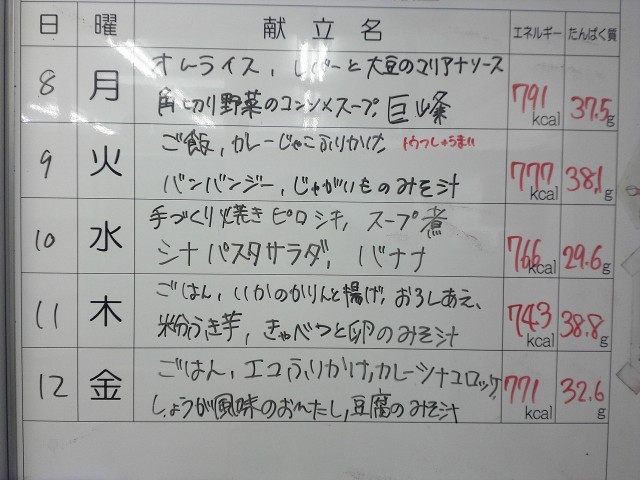 日 曜 献立名 エネルギー たんぱく質
8 月 オムライス、レバーと大豆のマリアナソース
角切り野菜のコンソメスープ 巨峰 791 kcal 37.5 g
9 火 ご飯、カレーじゃこふりかけ
バンバンジー、じゃがいものみそ汁 777 kcal 38.1 g
10 水 手づくり焼きピロシキ、スープ煮
シナパスタサラダ、バナナ 766 kcal 29.6 g
11 木 ごはん、いかのかりんと揚げ、おろしあえ、
粉ふき芋、きゃべつと卵のみそ汁 743 kcal 38.8 g
12 金 ごはん、エコふりかけ、カレーシナコロッケ
しょうが風味のおひたし、豆腐のみそ汁 771 kcal 32.6 g